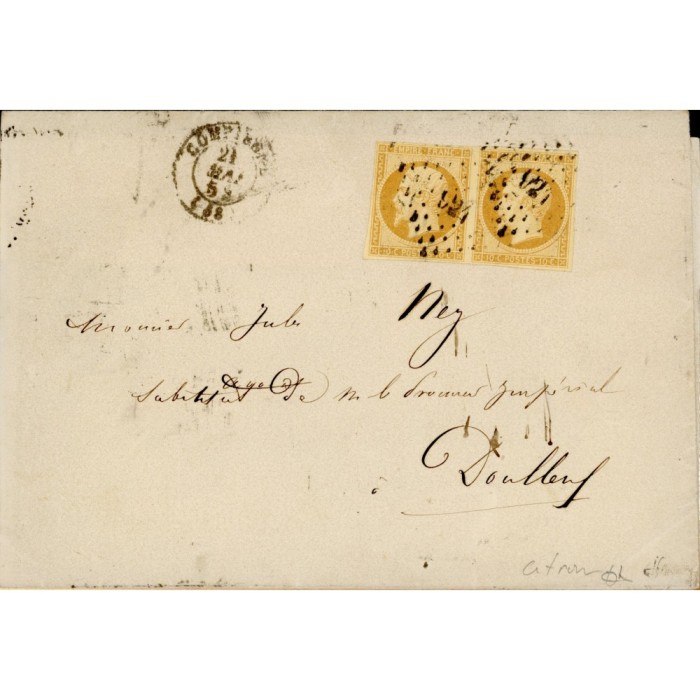 COMPIEGNE
21
MAI
58
(58)
EMPIRE FRANC
10·C·POSTES·10·C
10·C·POSTES·10·C
Monsieur Jules Ney
Substitut de M le Procureur Impérial
à Doullens
citron